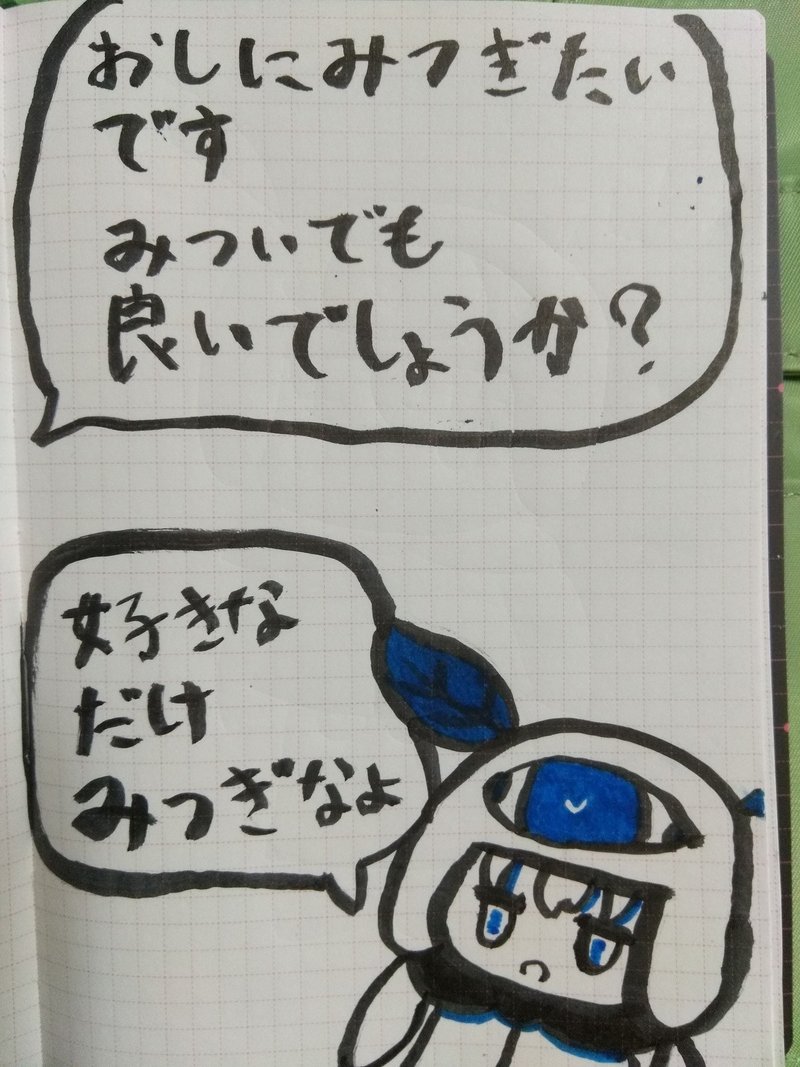 おしにみつぎたい
です
みついでも
良いでしょうか?
好きな
だけ
みつぎなよ